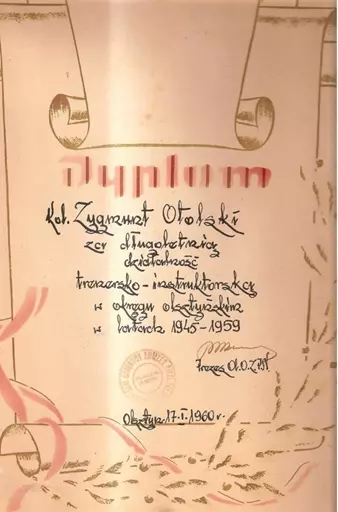 Dyplom
Kol. Zygmunt Otolski
za długoletnią
działalność
trenersko-instruktorską
w okręgu olsztyńskim
w latach 1945-1959
Prezes Ol.O.Z.P.N.
Olsztyn 17.I.1960 r.